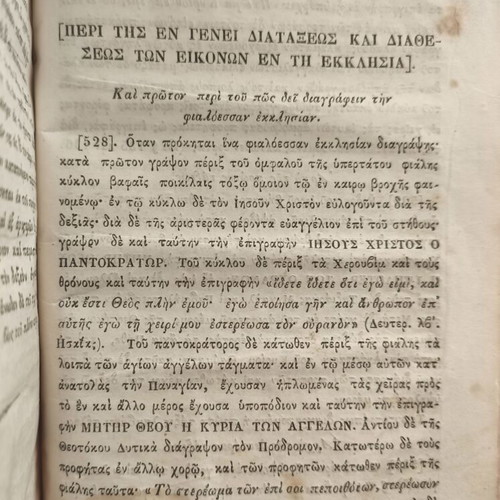 [ΠΕΡΙ ΤΗΣ ΕΝ ΓΕΝΕΙ ΔΙΑΤΑΞΕΩΣ ΚΑΙ ΔΙΑΘΕ-
ΣΕΩΣ ΤΩΝ ΕΙΚΟΝΩΝ ΕΝ ΤΗ ΕΚΚΛΗΣΙΑ].
Καὶ πρῶτον περὶ τοῦ πῶς δεῖ διαγράφειν τὴν
φιαλόεσσαν ἐκκλησίαν.
[528]. Ὅταν πρόκηται ἵνα φιαλόεσσαν ἐκκλησίαν διαγράψῃς·
κατὰ πρῶτον γράψον πέριξ τοῦ ὀμφαλοῦ τῆς ὑπερτάτου φιάλης
κύκλον βαφαῖς ποικίλαις τόξῳ ὅμοιον τῷ ἐν καιρῳ βροχῆς φαι-
νομένῳ· ἐν τῷ κύκλῳ δὲ τὸν Ἰησοῦν Χριστὸν εὐλογοῦντα διὰ τῆς
δεξιᾶς· διὰ δὲ τῆς ἀριστερᾶς φέροντα εὐαγγέλιον ἐπὶ τοῦ στήθους·
γράψον δὲ καὶ ταύτην τὴν ἐπιγραφὴν ΙΗΣΟΥΣ ΧΡΙΣΤΟΣ Ο
ΠΑΝΤΟΚΡΑΤΩΡ. Τοῦ κύκλου δὲ πέριξ τὰ Χερουβὶμ καὶ τοὺς
θρόνους καὶ ταύτην τὴν ἐπιγραφὴν «ἴδετε ἴδετε ὅτι ἐγώ εἰμι, καὶ
οὐκ ἔστι Θεὸς πλὴν ἐμοῦ· ἐγὼ ἐποίησα γῆν καὶ ἄνθρωπον ἐπ'
αὐτῆς ἐγὼ τῇ χειρί μου ἐστερέωσα τὸν οὐρανὸν» (Δευτερ. λβ΄.
Ἡσαΐας). Τοῦ παντοκράτορος δὲ κάτωθεν πέριξ τῆς φιάλης τὰ
λοιπὰ τῶν ἁγίων ἀγγέλων τάγματα· καὶ ἐν τῷ μέσῳ αὐτῶν κατ'
ἀνατολὰς τὴν Παναγίαν, ἔχουσαν ἡπλωμένας τὰς χεῖρας πρὸς
τὸ ἓν καὶ ἄλλο μέρος ἔχουσα ὑποπόδιον καὶ ταύτην τὴν ἐπιγρα-
φὴν ΜΗΤΗΡ ΘΕΟΥ Η ΚΥΡΙΑ ΤΩΝ ΑΓΓΕΛΩΝ. Ἀντίου δὲ τῆς
Θεοτόκου Δυτικὰ διάγραψον τὸν Πρόδρομον. Κατωτέρω δὲ τοὺς
προφήτας ἐν ἄλλῳ χορῷ, καὶ τῶν προφητῶν κάτωθεν πέριξ τῆς
φιάλης ταῦτα· «Τὸ στερέωμα τῶν ἐπὶ σοι πεποιθότων, στερέωσον